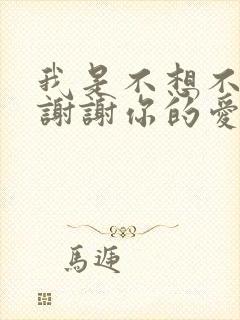 我是不想不
謝謝你的愛
馬迊